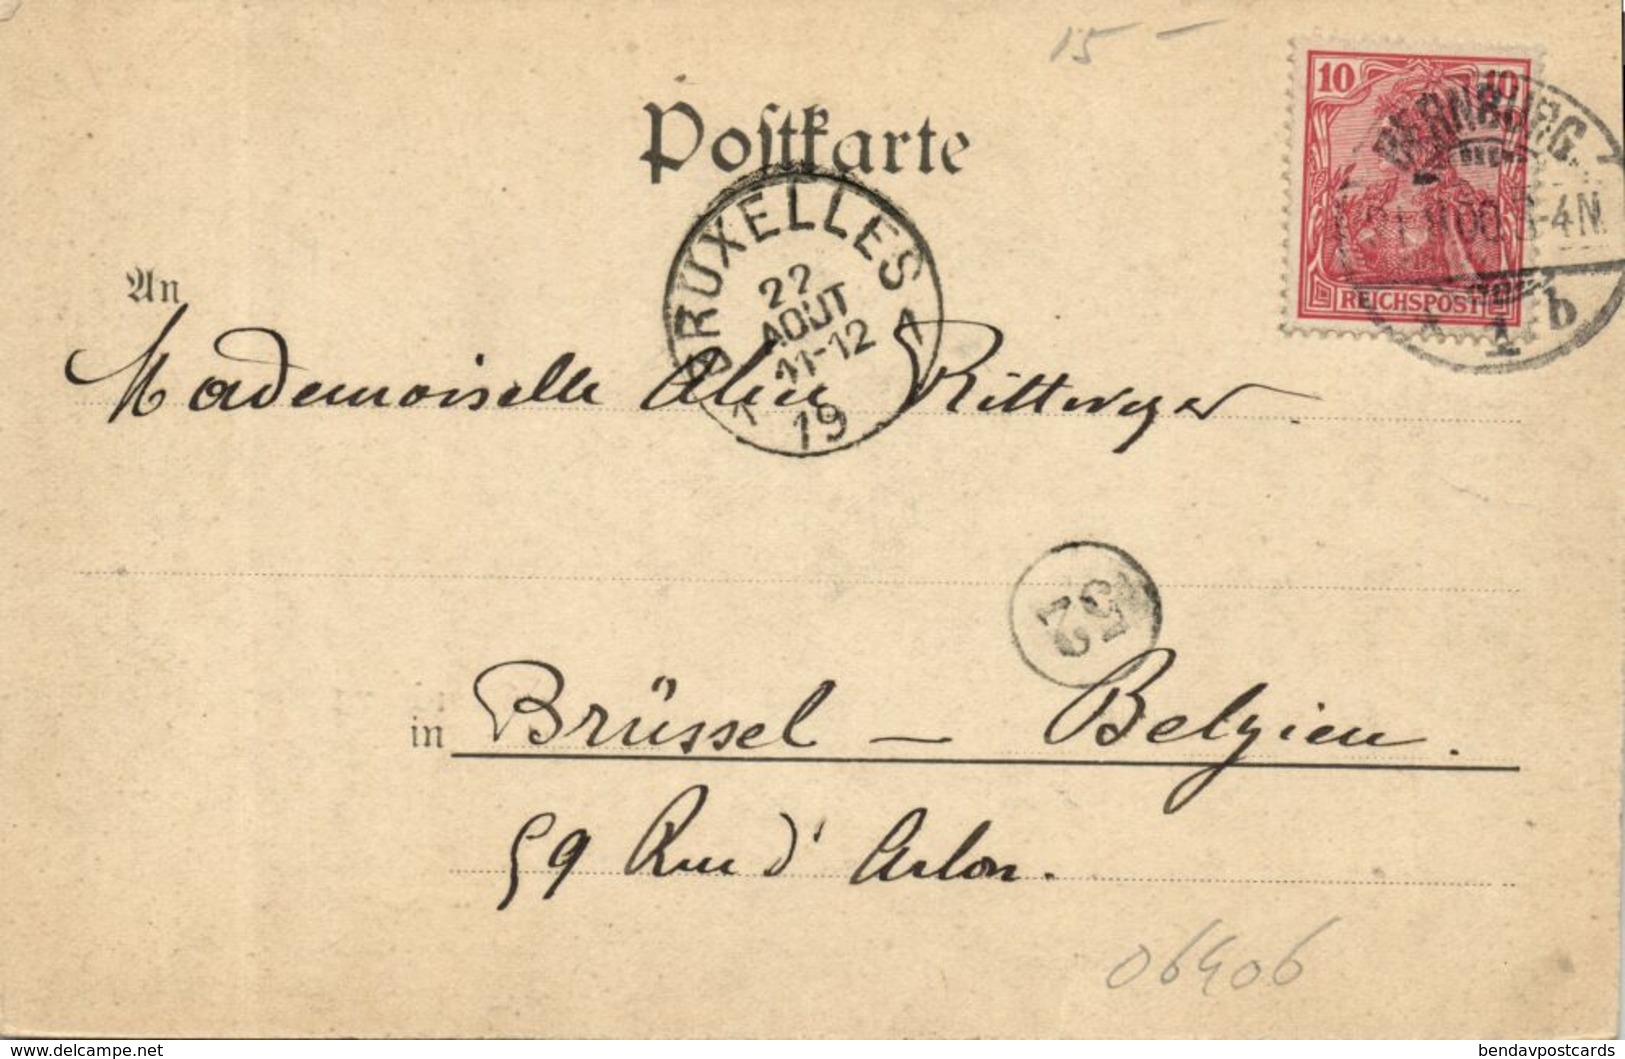 15 –
Postkarte
10 10
REICHSPOST
BERNBURG
00 3-4N
1 b
BRUXELLES
22
AOUT
11-12
19
1 1
An
Mademoiselle Alice Rittweger
52
in Brüssel – Belgien.
59 Rue d'Arlon.
06406
www.delcampe.net bendavpostcards